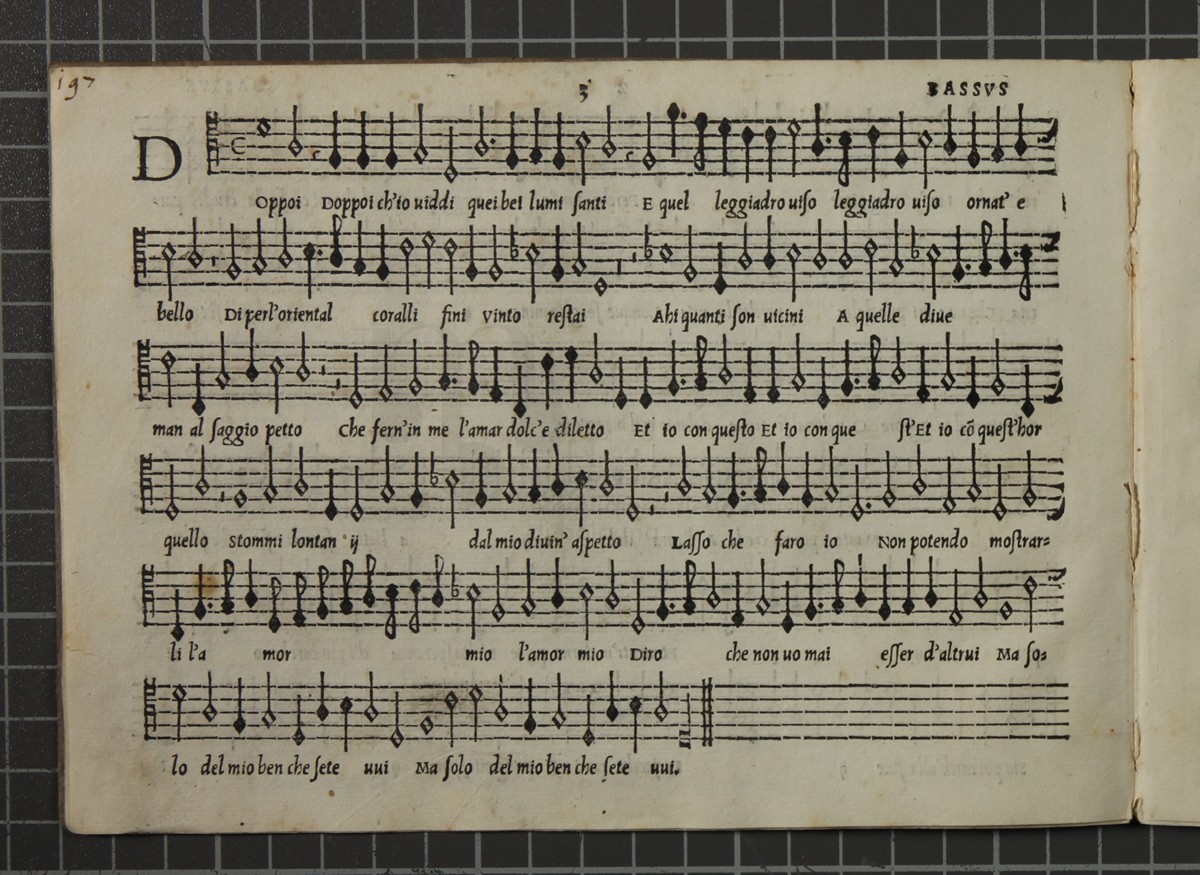 197
3
BASSVS
D Oppoi Doppoi ch'io uiddi quei bei lumi santi E quel leggiadro uiso leggiadro uiso ornat' e
bello Di perl'oriental coralli fini vinto restai Ahi quanti son uicini A quelle diue
man al saggio petto Che fern'in me l'amar dolc'e diletto Et io con questo Et io con que st'Et io cõ quest'hor
quello stommi lontan ij dal mio diuin' aspetto Lasso che faro io Non potendo mostrar=
li l'a mor mio l'amor mio Diro che non uo mai esser d'altrui Ma so=
lo del mio ben che sete uui Ma solo del mio ben che sete uui.